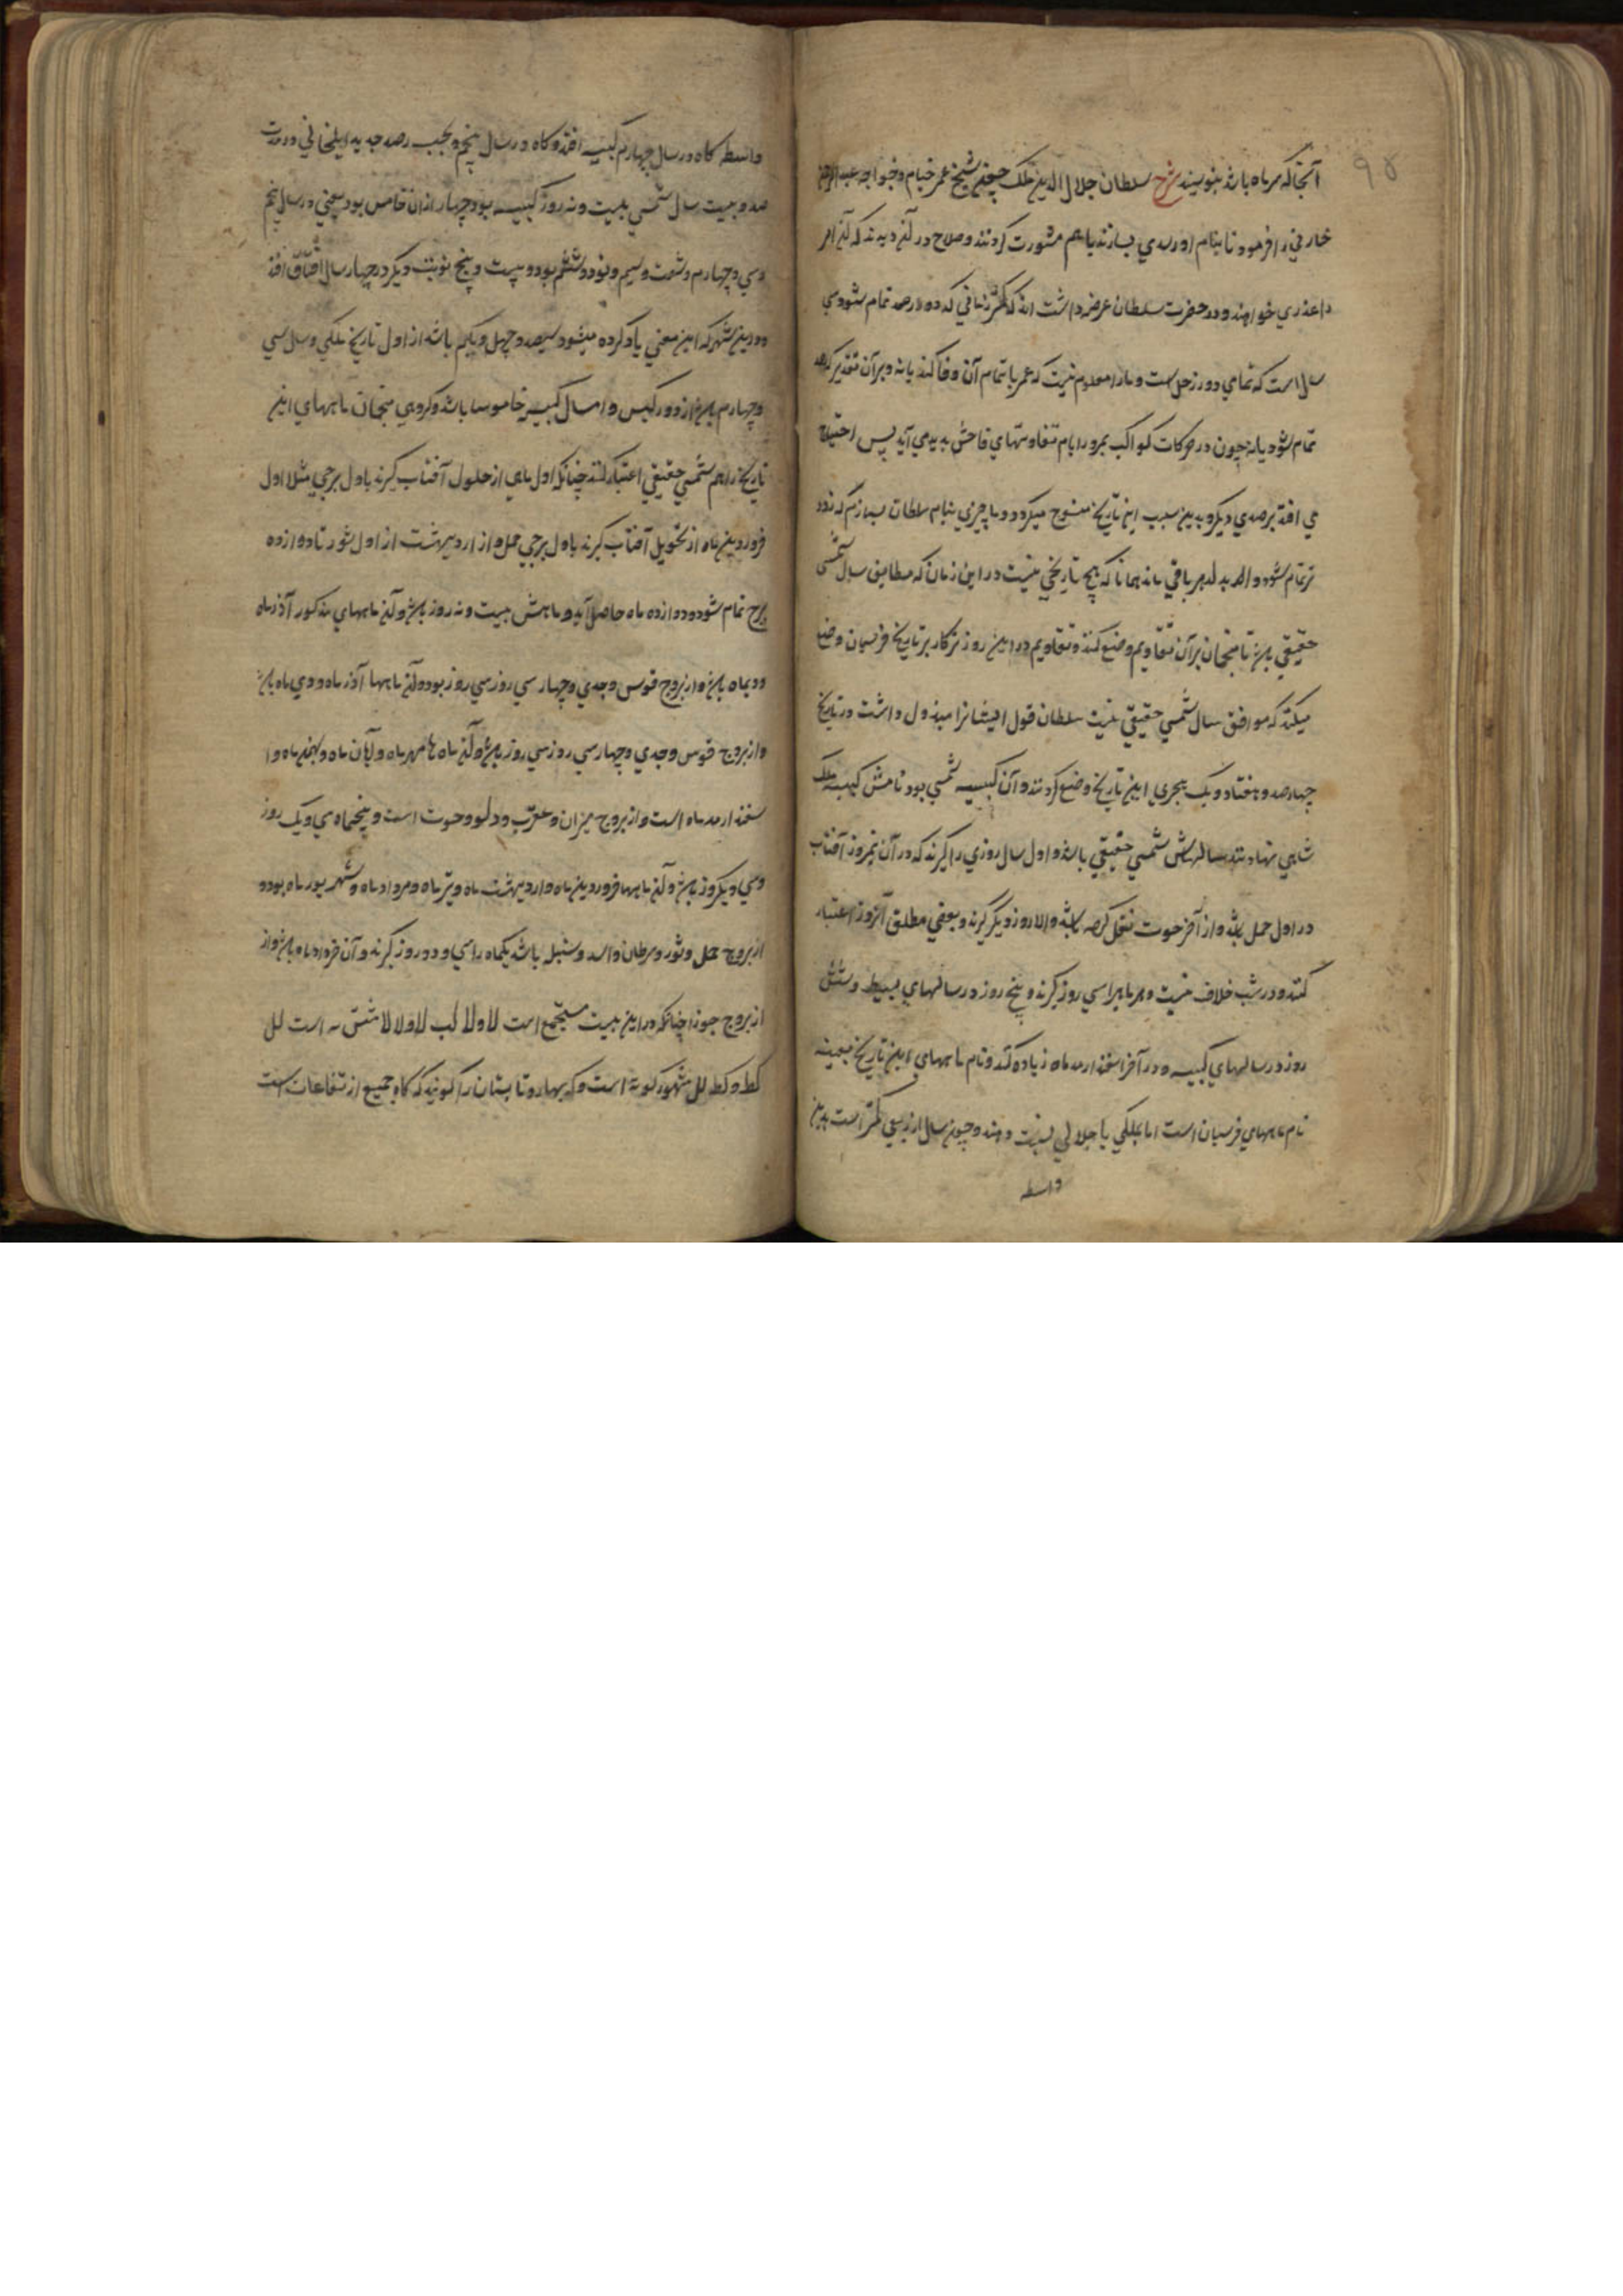 ۹۵
آنجا که سر ماه باشد بنویسند شرح سلطان جلال الدین ملک شیخ عمر خیام و خواجه عبد الرحمن
خازنی را فرمود تا بنام او رصدی بسازند باهم مشورت کردند و صلاح در آن دیدند که آن امر
را عذری خواهند و در حضرت سلطان عرضه داشت که کمتر زمانی که دو رصد تمام شود سی
سال است که تمامی دور زحل است و ما را معلوم نیست که عمر باتمام آن وفا کند یا نه و بر آن تقدیر که رصد
تمام شود یا نه چون در حرکات کواکب بمرور ایام تفاوتهای فاحش پدید می آید پس احتیاج
می افتد برصدی دیگر و بدین سبب این تاریخ منسوخ میکردد و ما چیزی بنام سلطان بسازیم که زود
تر تمام شود و ابد الدهر باقی ماند همانا که هیچ تاریخی نیست در این زمان که مطابق سال شمسی
حقیقی باشد تا منجمان بر آن تقاویم وضع کنند و تقاویم در این روزکار بر تاریخ فرسیان وضع
میکنند که موافق سال شمسی حقیقی نیست سلطان قول ایشانرا مبذول داشت در تاریخ
چهارصد و هفتاد و یک هجری این تاریخ وضع کردند و آن کبیسه شمسی بود نامش کبیسه ملک
شاهی نهادند سالهاش شمسی حقیقی باشد و اول سال روزی را گیرند که در آن نیمروز آفتاب
در اول حمل باشد و از آخر حوت نقل کرده باشد والا روز دیگر گیرند و بعضی مطلق آنروز اعتبار
کنند و در شب خلاف نیست و هر ماهرا سی روز گیرند و پنج روز در سالهای بسیط و شش
روز در سالهای کبیسه و در آخر اسفندارمد ماه زیاده کنند و نام ماههای این تاریخ بعینه
نام ماههای فرسیان است اما بملکی یا جلالی نسبت دهند و چون سال از ربعی کمتر است بدین
واسطه
واسطه کاه در سال چهارم کبیسه افتد و کاه در سال پنجم و بحسب رصد جدید ایلخانی در مدت
صد و بیست سال شمسی بیست و نه روز کبیسه بود چهار از آن خامس بود یعنی در سال پنجم
و سی و چهارم و شصت و سیم و نود و ششم بود و بیست و پنج نوبت دیگر در چهار سال اتفاق افتد
و در این شهر که این معنی یاد کرده میشود سیصد و چهل و یکم باشد از اول تاریخ ملکی و سال سی
و چهارم باشد از دور کبیس و امسال کبیسه خاموسا باشد و کروهی منجمان ماههای این
تاریخ را هم شمسی حقیقی اعتبار کنند چنانکه اول ماه از حلول آفتاب گیرند باول برجی مثلا اول
فروردین ماه از تحویل آفتاب گیرند باول برجی حمل و از اردیبهشت از اول ثور تا دوازده
برج تمام شود و دوازده ماه حاصل آید و ماهش بیست و نه روز باشد و آن ماههای مذکور آذر ماه
و دیماه باشد و از بروج قوس و جدی و چهار سی روز سی روز بود و آن ماهها آذر ماه و دی ماه باشد
و از بروج قوس و جدی و چهار سی روز سی روز باشد و آن ماه ها مهر ماه و آبان ماه و بهمن ماه و ا
سفندارمد ماه است و از بروج میزان و عقرب و دلو و حوت است و پنجماه سی و یک روز
و سی و یکروز باشد و آن ماهها فروردین ماه و اردیبهشت ماه و تیر ماه و مرداد ماه و شهریور ماه بود و
از بروج حمل و ثور و سرطان و اسد و سنبله باشد یکماه را سی و دو روز گیرند و آن خرداد ماه باشد و از
از بروج جوزا چنانکه در این بیت مستجمع است لا و لا لب لا و لا لا شش مه است لل
کط و کط لل شهور کوته است و که بهار و تابستان را کویند که کاه جمیع ارتفاعات است